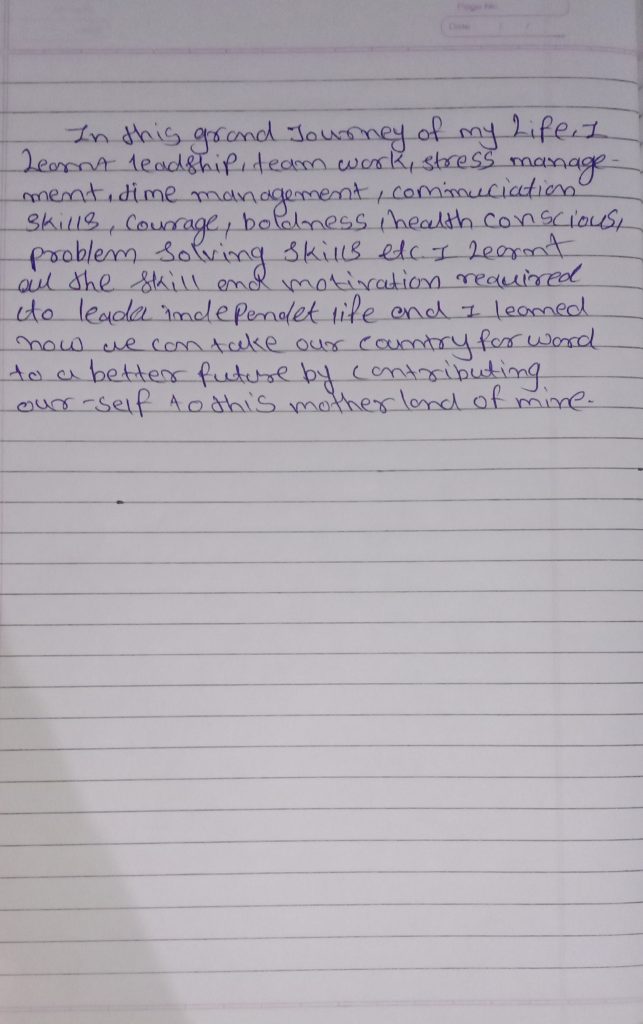 Page No.
Date / /
In this grand Journey of my Life, I
Learnt leadship, team work, stress manage-
ment, time management, commuciation
skills, Courage, boldness, health conscious,
problem solving skills etc. I Learnt
all the skill and motivation required
to leada independet life and I learned
how we can take our country for word
to a better future by contributing
our-self to this mother land of mine.